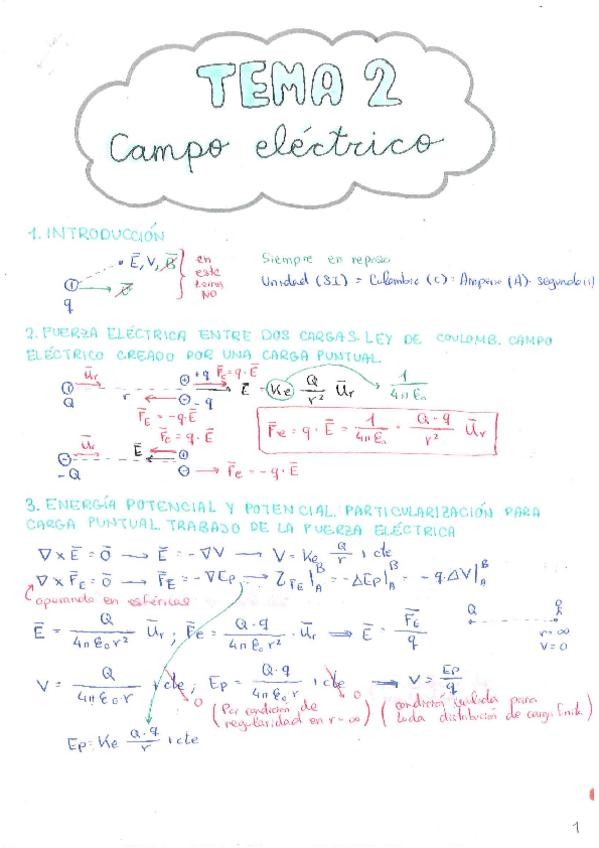 TEMA 2
Campo eléctrico
1. INTRODUCCIÓN
+ q • E⃗, V, B⃗ v⃗ en este tema NO
Siempre en reposo
Unidad (SI) = Culombio (C) = Amperio (A) · segundo (s)
2. FUERZA ELÉCTRICA ENTRE DOS CARGAS. LEY DE COULOMB. CAMPO
ELÉCTRICO CREADO POR UNA CARGA PUNTUAL.
+ Q u⃗r r + +q F⃗e = q·E⃗ E⃗ = Ke Q/r² u⃗r 1/4πε₀
F⃗E = -q·E⃗ -q
F⃗e = q·E⃗ = 1/4πε₀ · Q·q/r² u⃗r
F⃗e = q·E⃗
- -Q u⃗r E⃗ + - F⃗e = -q·E⃗
3. ENERGÍA POTENCIAL Y POTENCIAL. PARTICULARIZACIÓN PARA
CARGA PUNTUAL. TRABAJO DE LA FUERZA ELÉCTRICA
∇ x E⃗ = 0⃗ → E⃗ = -∇V → V = Ke Q/r + cte
∇ x F⃗E = 0⃗ → F⃗E = -∇Ep → ZFE|ᴮA = -ΔEp|ᴮA = -q·ΔV|ᴮA
operando en esféricas
E⃗ = Q/4πε₀r² u⃗r ; F⃗e = Q·q/4πε₀r² · u⃗r ⟹ E⃗ = F⃗E/q
Q r=∞ V=0
V = Q/4πε₀·r + cte 0 ; Ep = Q·q/4πε₀·r + cte 0 → V = Ep/q
(Por condición de regularidad en r=∞) (condición válida para toda distribución de carga finita)
Ep = Ke Q·q/r + cte
1